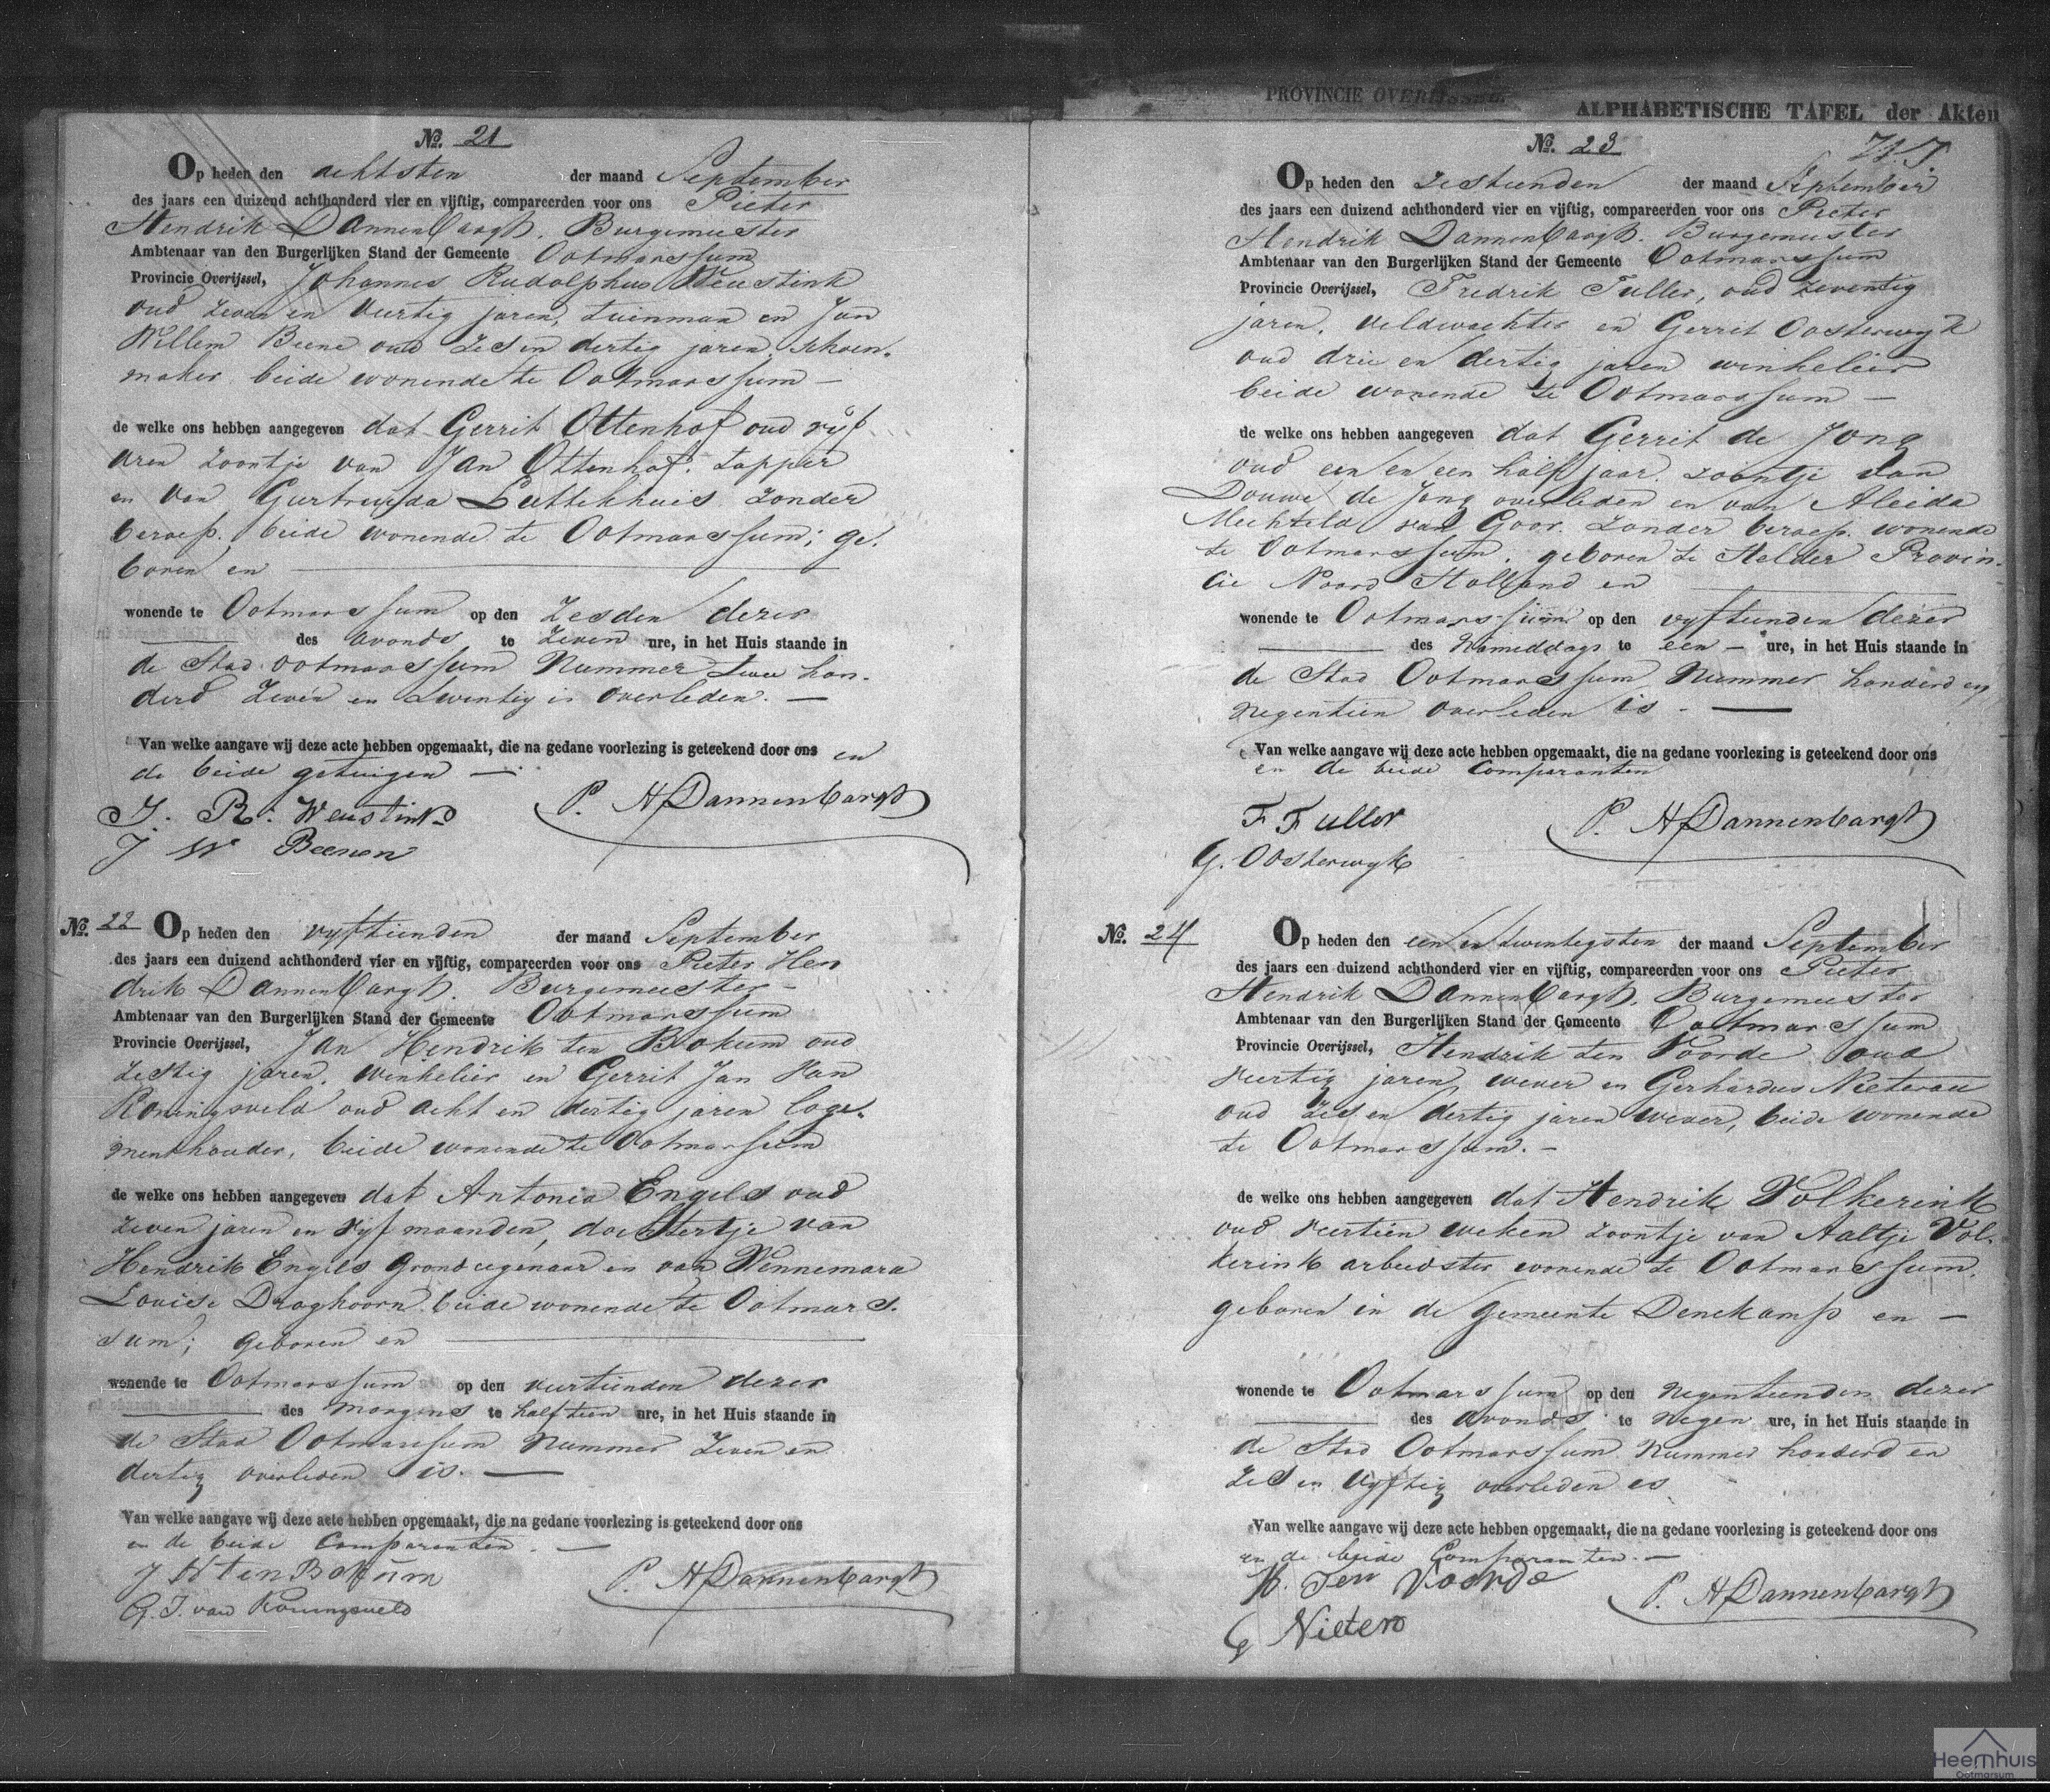 PROVINCIE OVERIJSSEL.
ALPHABETISCHE TAFEL der Akten
No. 21
Op heden den achtsten der maand September
des jaars een duizend achthonderd vier en vijftig, compareerden voor ons Pieter
Hendrik Dannenbargh. Burgemeester
Ambtenaar van den Burgerlijken Stand der Gemeente Ootmarssum
Provincie Overijssel, Johannes Rudolphus Weustink
oud zeven en veertig jaren, tuinman en Jan
Willem Beene oud zes en dertig jaren, schoen-
maker beide wonende te Ootmarssum —
de welke ons hebben aangegeven dat Gerrit Ottenhof oud vijf
aren zoontje van Jan Ottenhof. tapper
en van Gurtruida Luttikhuis zonder
beroep. beide wonende te Ootmarssum; ge-
boren en
wonende te Ootmarssum op den zesden dezer
des avonds te zeven ure, in het Huis staande in
de Stad Ootmarssum Nummer twee hon-
derd zeven en twintig is overleden. —
Van welke aangave wij deze acte hebben opgemaakt, die na gedane voorlezing is geteekend door ons en
de beide getuigen —
J. R. Weustink
P. H Dannenbargh
J W Beenen
No. 22 Op heden den vyftienden der maand September
des jaars een duizend achthonderd vier en vijftig, compareerden voor ons Pieter Hen
drik Dannenbargh. Burgemeester
Ambtenaar van den Burgerlijken Stand der Gemeente Ootmarssum
Provincie Overijssel, Jan Hendrik ten Bokum oud
zestig jaren, winkelier en Gerrit Jan van
Koningsveld oud acht en dertig jaren loge-
menthouder, beide wonende te Ootmarssum
de welke ons hebben aangegeven dat Antonia Engels oud
zeven jaren en vijf maanden, dochtertje van
Hendrik Engels Grondeigenaar en van Wennemara
Louise Draghoorn beide wonende te Ootmars-
sum; geboren en
wonende te Ootmarssum op den veertienden dezer
des morgens te half tien ure, in het Huis staande in
de Stad Ootmarssum Nummer zeven en
dertig overleden is. —
Van welke aangave wij deze acte hebben opgemaakt, die na gedane voorlezing is geteekend door ons
en de beide Comparanten. —
J H ten Bokum
P. H Dannenbargh
G. J. van Koningsveld
No. 23
Op heden den zestienden der maand September
des jaars een duizend achthonderd vier en vijftig, compareerden voor ons Pieter
Hendrik Dannenbargh. Burgemeester
Ambtenaar van den Burgerlijken Stand der Gemeente Ootmarssum
Provincie Overijssel, Fredrik Fuller, oud zeventig
jaren, veldwachter en Gerrit Oosterwyk
oud drie en dertig jaren winkelier
beide wonende te Ootmarssum —
de welke ons hebben aangegeven dat Gerrit de Jong
oud een en een half jaar. zoontje van
Douwe de Jong overleden en van Aleida
Mechteld van Goor. zonder beroep. wonende
te Ootmarssum. geboren te Helder Provin-
cie Noord Holland en
wonende te Ootmarssum op den vyftienden dezer
des Namiddags te een – ure, in het Huis staande in
de Stad Ootmarssum Nummer honderd en
negentien overleden is. —
Van welke aangave wij deze acte hebben opgemaakt, die na gedane voorlezing is geteekend door ons
en de beide Comparanten
F Fuller
P. H Dannenbargh
G. Oosterwyk
No. 24 Op heden den een en twentigsten der maand September
des jaars een duizend achthonderd vier en vijftig, compareerden voor ons Pieter
Hendrik Dannenbargh. Burgemeester
Ambtenaar van den Burgerlijken Stand der Gemeente Ootmarssum
Provincie Overijssel, Hendrik ten Voorde oud
veertig jaren, wever en Gerhardus
oud zes en dertig jaren wever, beide wonende
te Ootmarssum. —
de welke ons hebben aangegeven dat Hendrik Volkerink
oud veertien weken zoontje van Aaltje Vol-
kerink arbeidster wonende te Ootmarssum,
geboren in de gemeente Denekamp en —
wonende te Ootmarssum op den negentienden dezer
des avonds te negen ure, in het Huis staande in
de Stad Ootmarssum Nummer honderd en
zes en vyftig overleden is
Van welke aangave wij deze acte hebben opgemaakt, die na gedane voorlezing is geteekend door ons
en de beide Comparanten. —
H. Ten Voorde
P. H Dannenbargh
G Nieters
Heemhuis
Ootmarsum